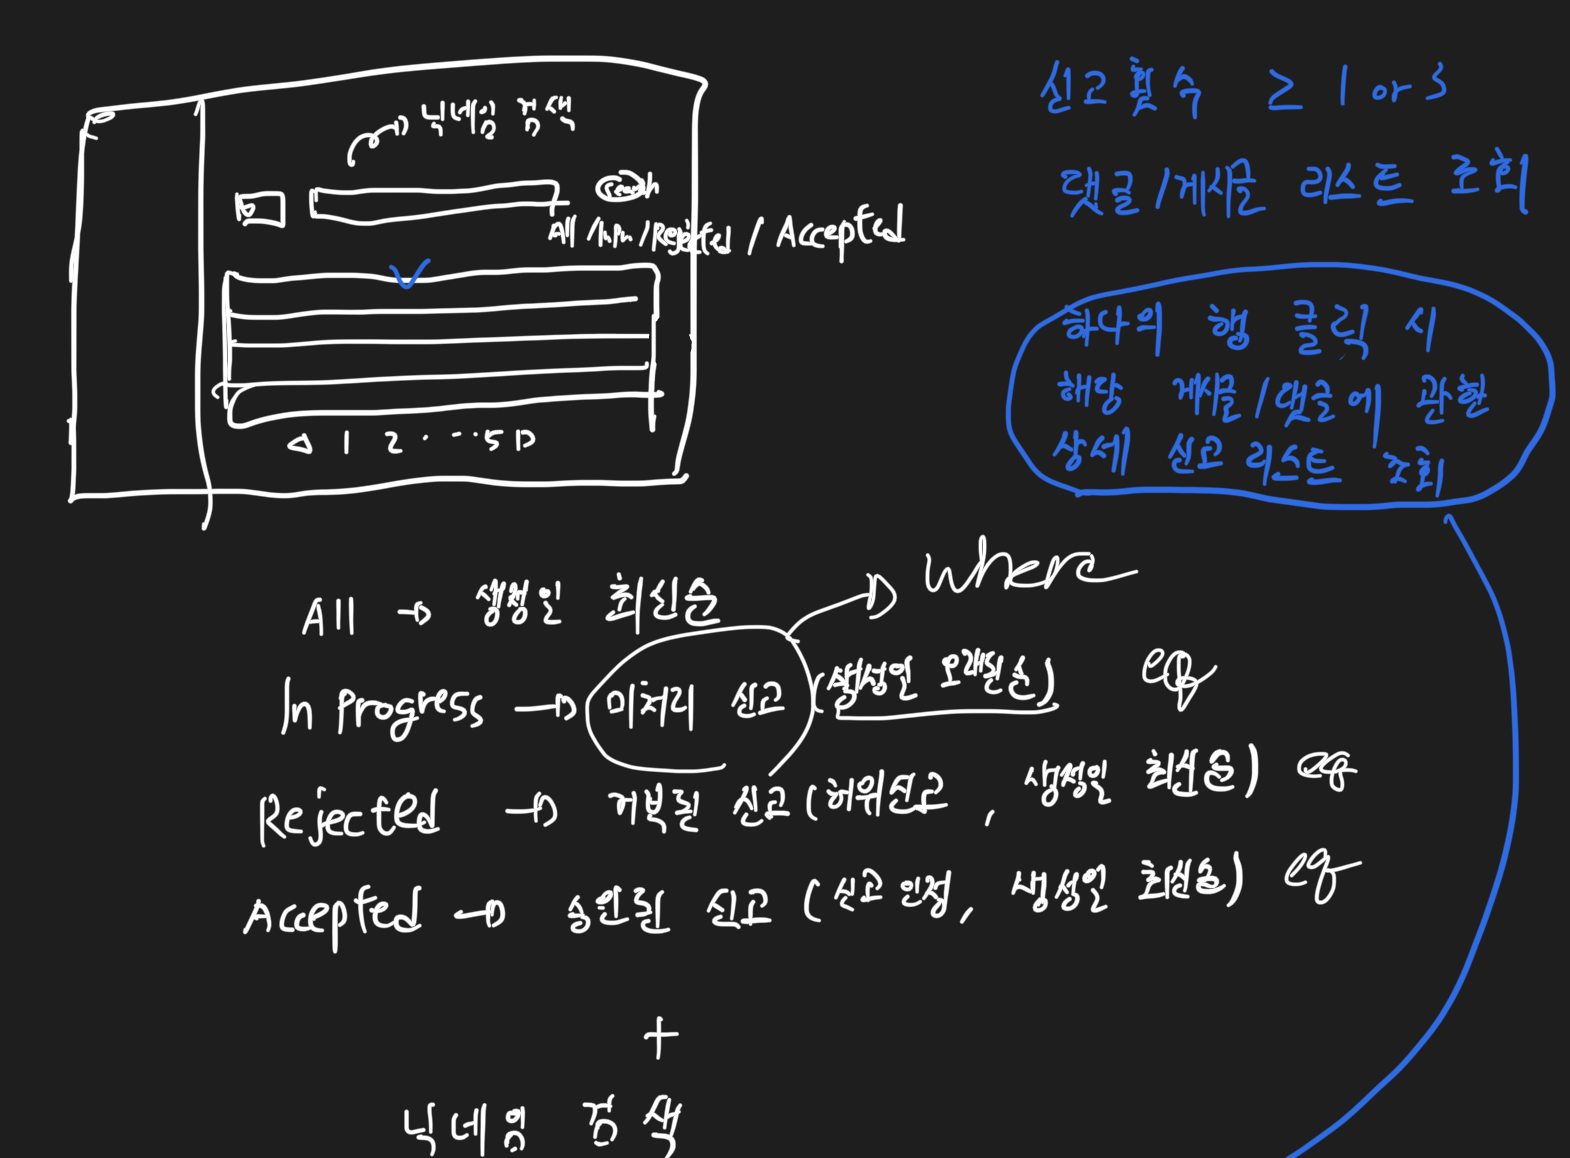 닉네임 검색
search
All / InPr / Rejected / Accepted
◁ 1 2 · -·· 5 ▷
신고 횟수 ≥ 1 or 3
댓글/게시글 리스트 조회
하나의 행 클릭 시
해당 게시글/댓글에 관한
상세 신고 리스트 조회
where
All → 생성일 최신순
In Progress → 미처리 신고 (생성일 오래된순) eq
Rejected → 거부된 신고 (허위신고, 생성일 최신순) eq
Accepted → 승인된 신고 (신고 인정, 생성일 최신순) eq
+
닉네임 검색